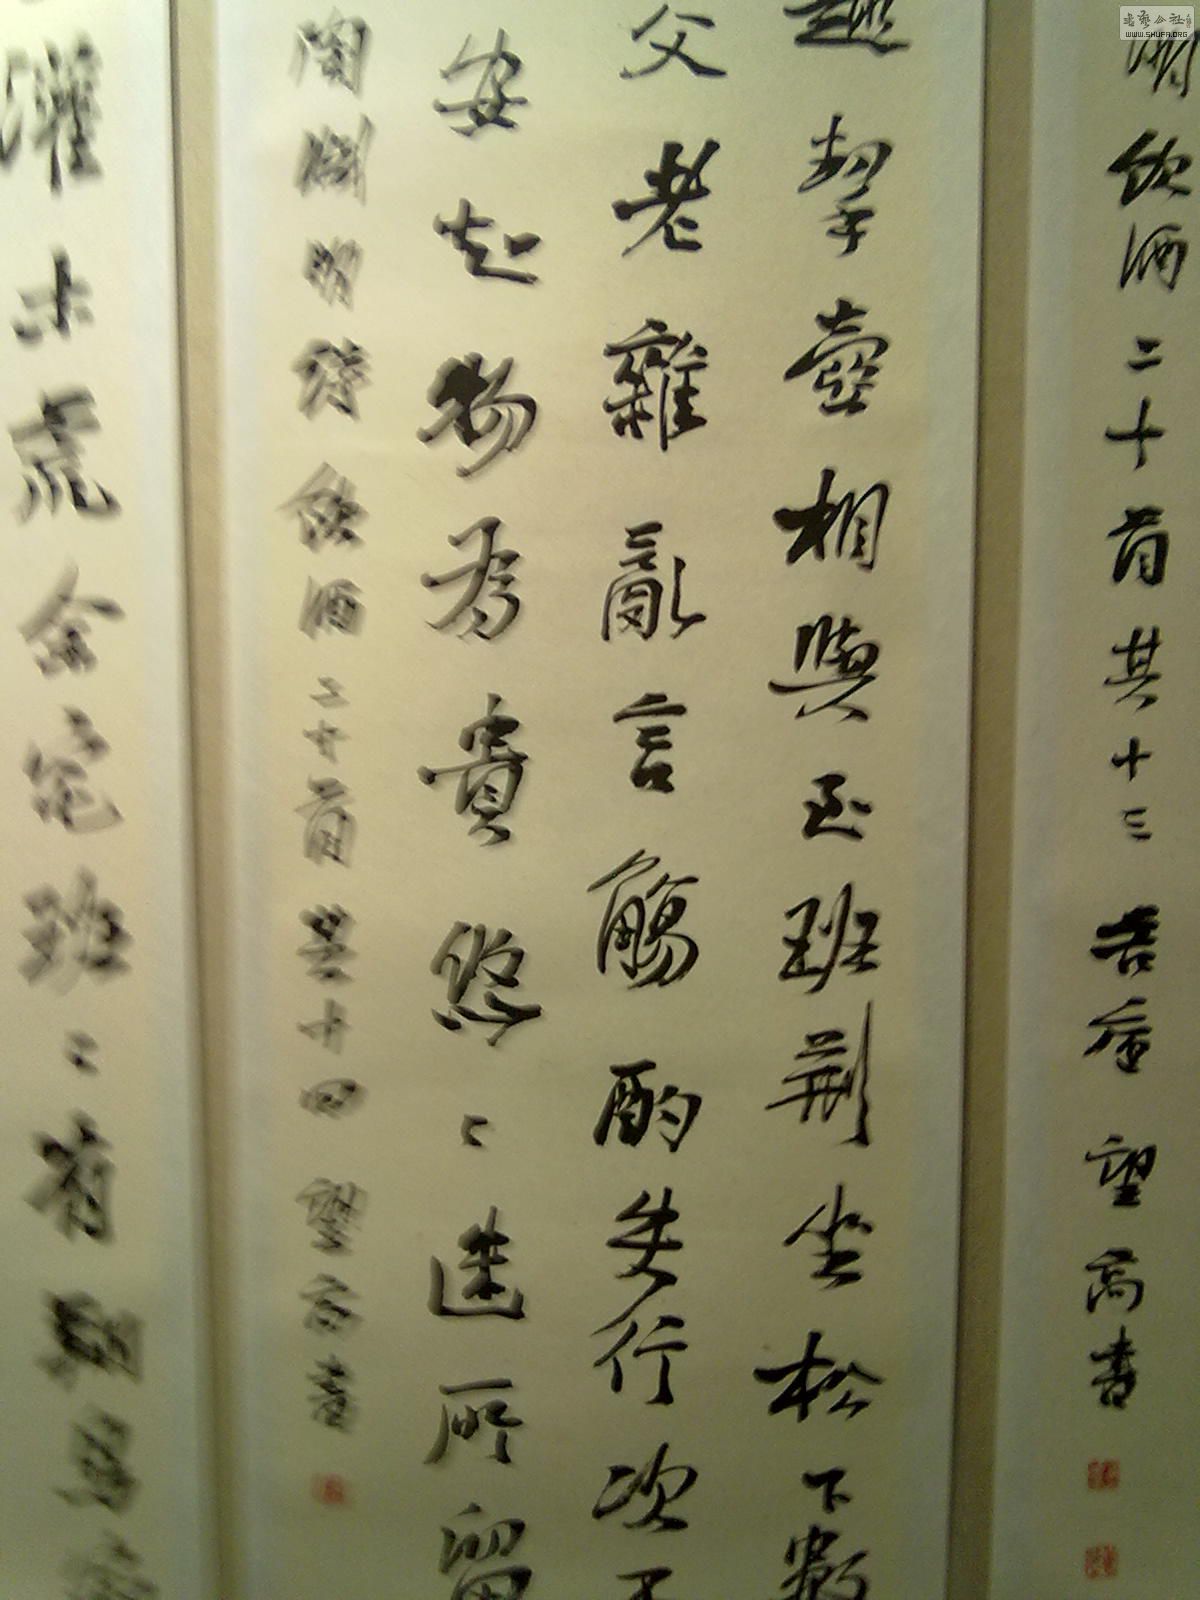 明飲酒二十首其十三 吾唐 望高書
趣挈壺相與至班荊坐松下數
父老雜亂言觴酌失行次不
安知物為貴悠〻迷所留
陶淵明詩飲酒二十首其十四 望高書
灌木荒余宅班〻有翔鳥
書藝公社
WWW.SHUFA.ORG